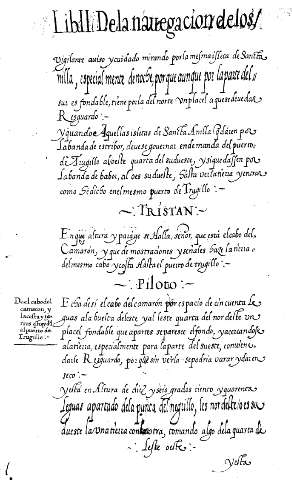 Lib II De la nauegacion de los/
vigilante auiso y cuidado mirando por la mesma isleta de Santa
nilla, especialmente de noche, porque aunque por la parte del
sus es fondable, tiene por la del norte un placel a que se deue dar
Resguardo:
Y quando Aquellas isletas de Santa Anilla quedaren por
la banda de estribor, deuese gouernar en demanda del puerto
de Trugillo al oeste quarta del sudueste, y si quedassen por
la banda de babor, al oes sudueste, hasta ver la tierra y entrar
como se dicho en el mesmo puerto de Trugillo
~ TRISTAN ~
En que altura y paraje se halla, señor, que está el cabo del
Camarón, y que demostraciones y señales haze la tierra
del mesmo cabo y costa hasta el puerto de trugillo ~
~ Piloto ~
Del cabo del
camaron, y
la costa y tie
rras a fondo
al puerto de
Trugillo :~
Echa de si el cabo del camarón por espacio de cincuenta le
guas a la buelta del este y al leste quarta del nordeste un
placel fondable que a partes se parece el fondo, y acercandose
a la tierra, especialmente para la parte del sueste, conuiene
darle Resguardo, por que sin verla se podria varar y dar en
seco :~
Y esta en Altura de diez y seis grados ciento y quarenta
leguas apartado de la punta del neguillo, les nordeste o es su
dueste la una tierra con la otra, tomando algo de la quarta de
leste oeste ~
Y esta